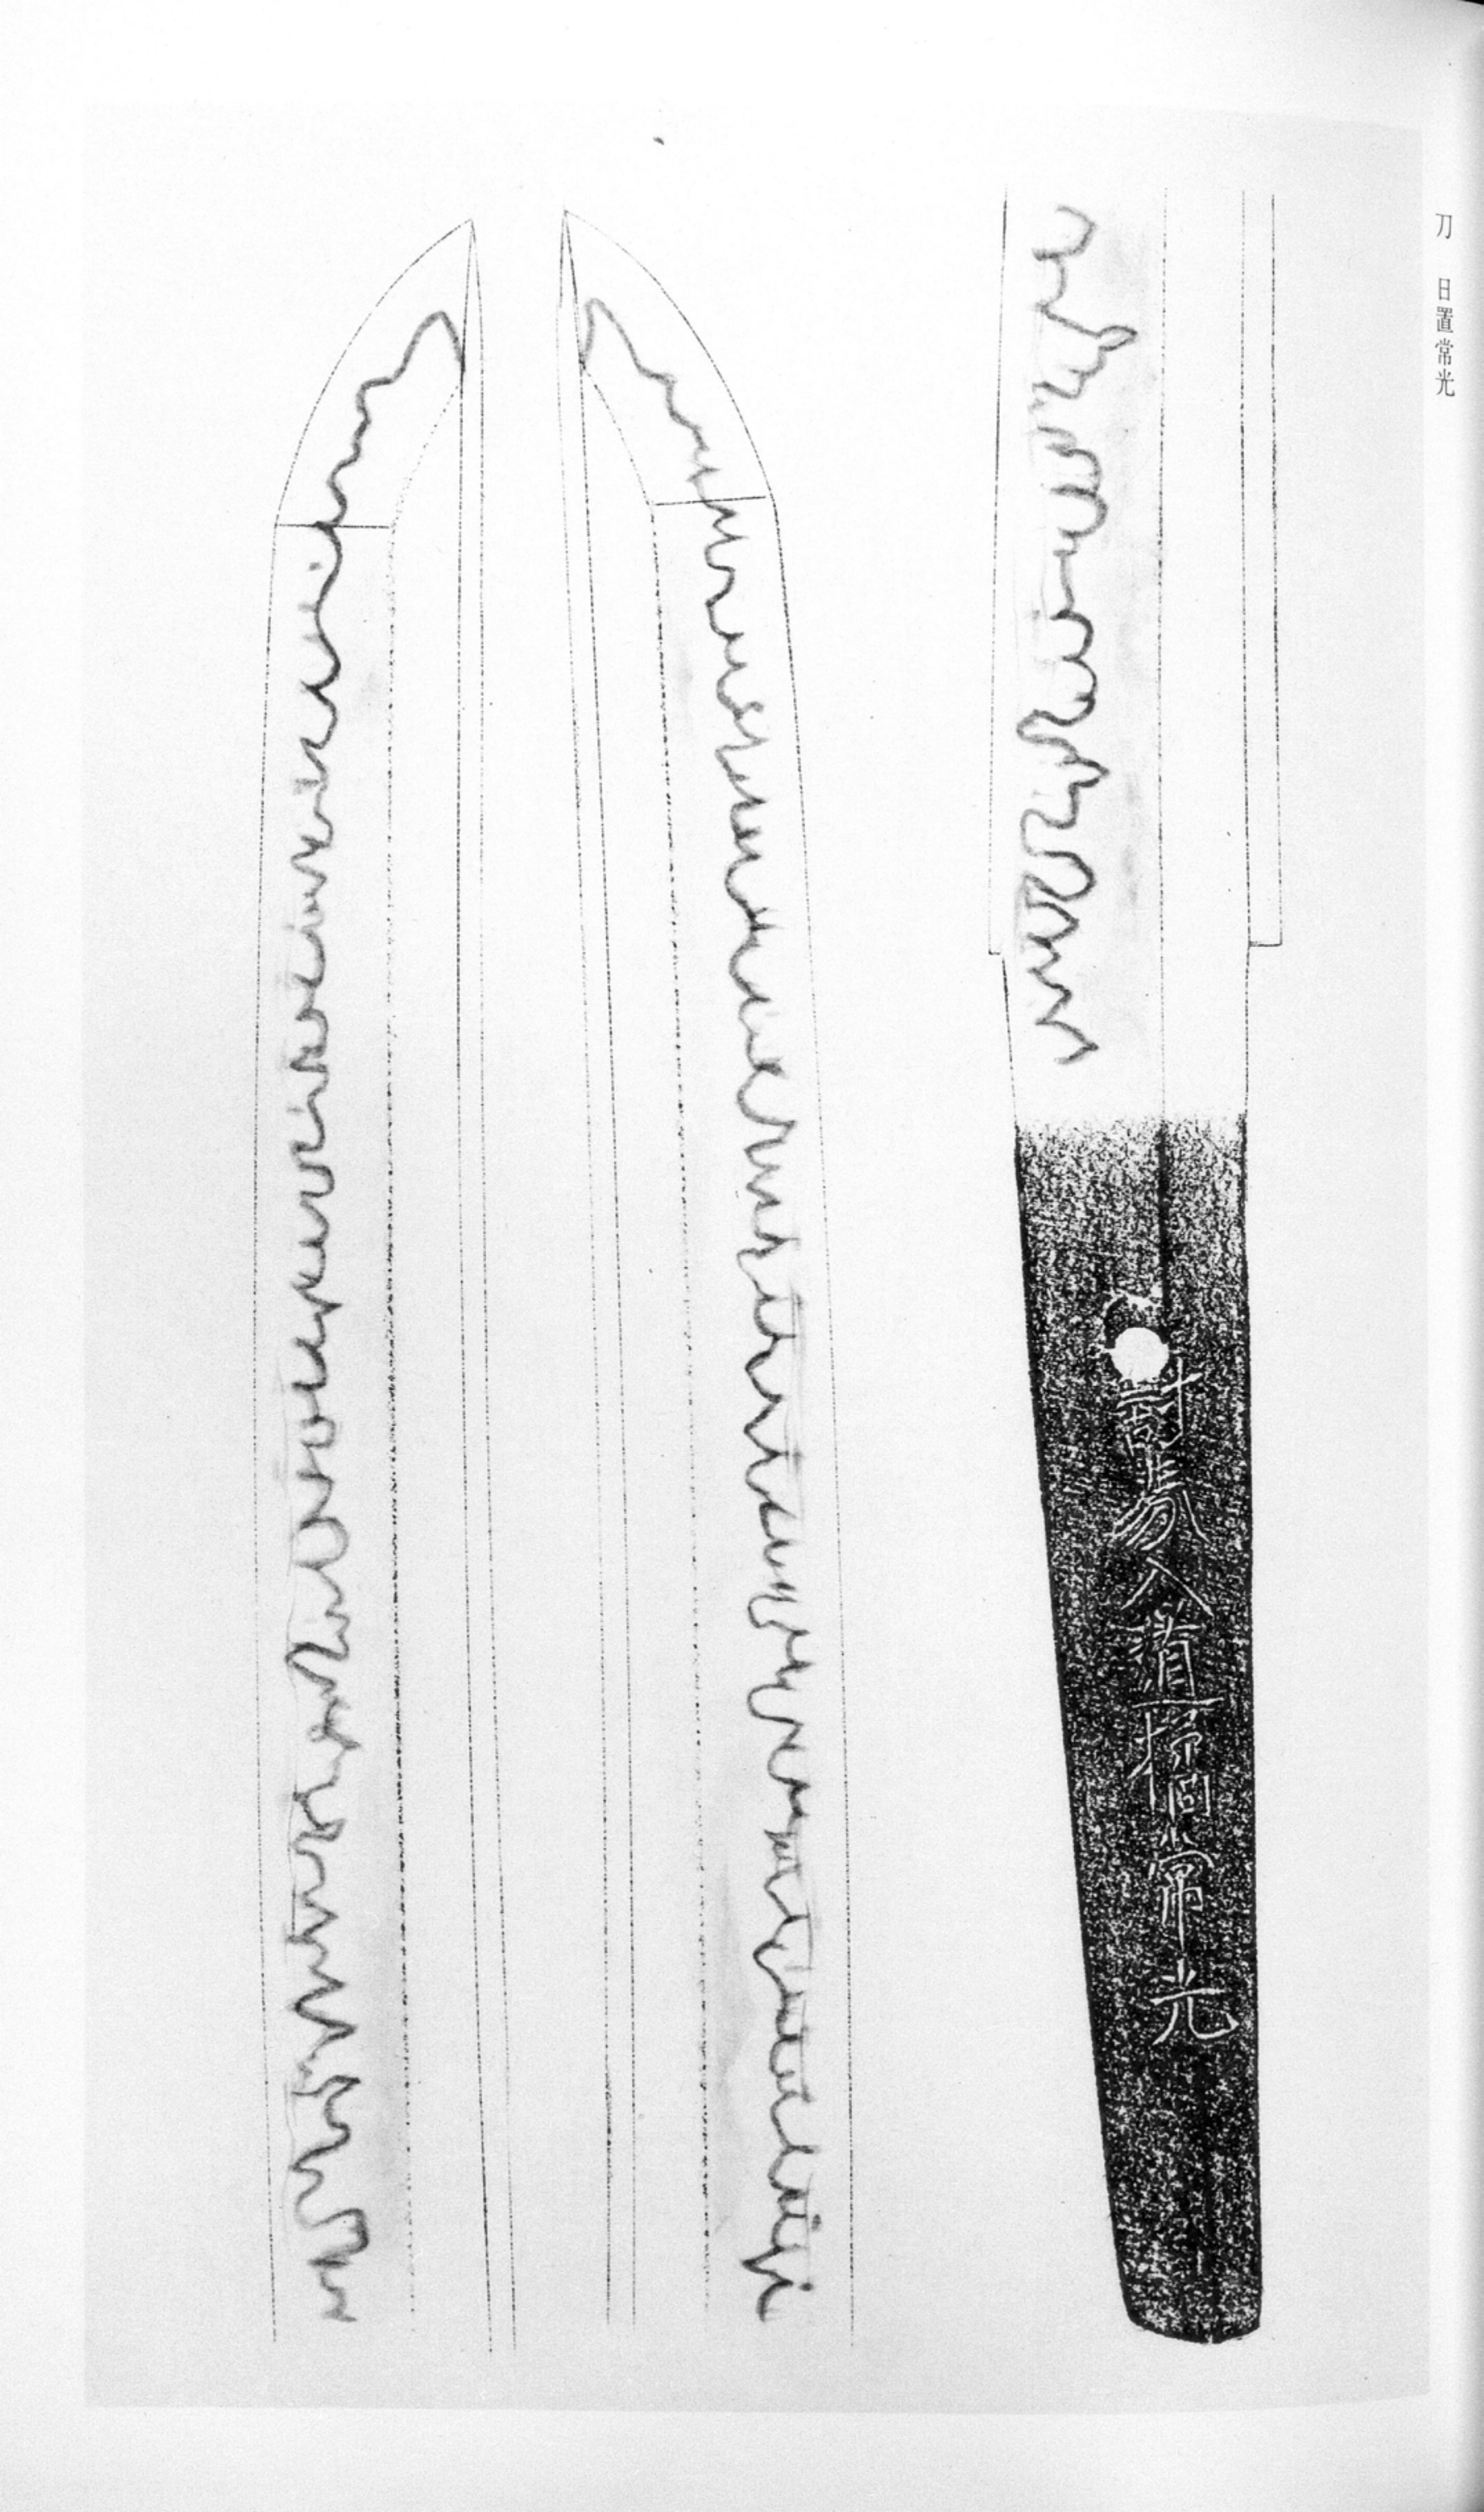 刀　日置常光
對馬入道橘常光